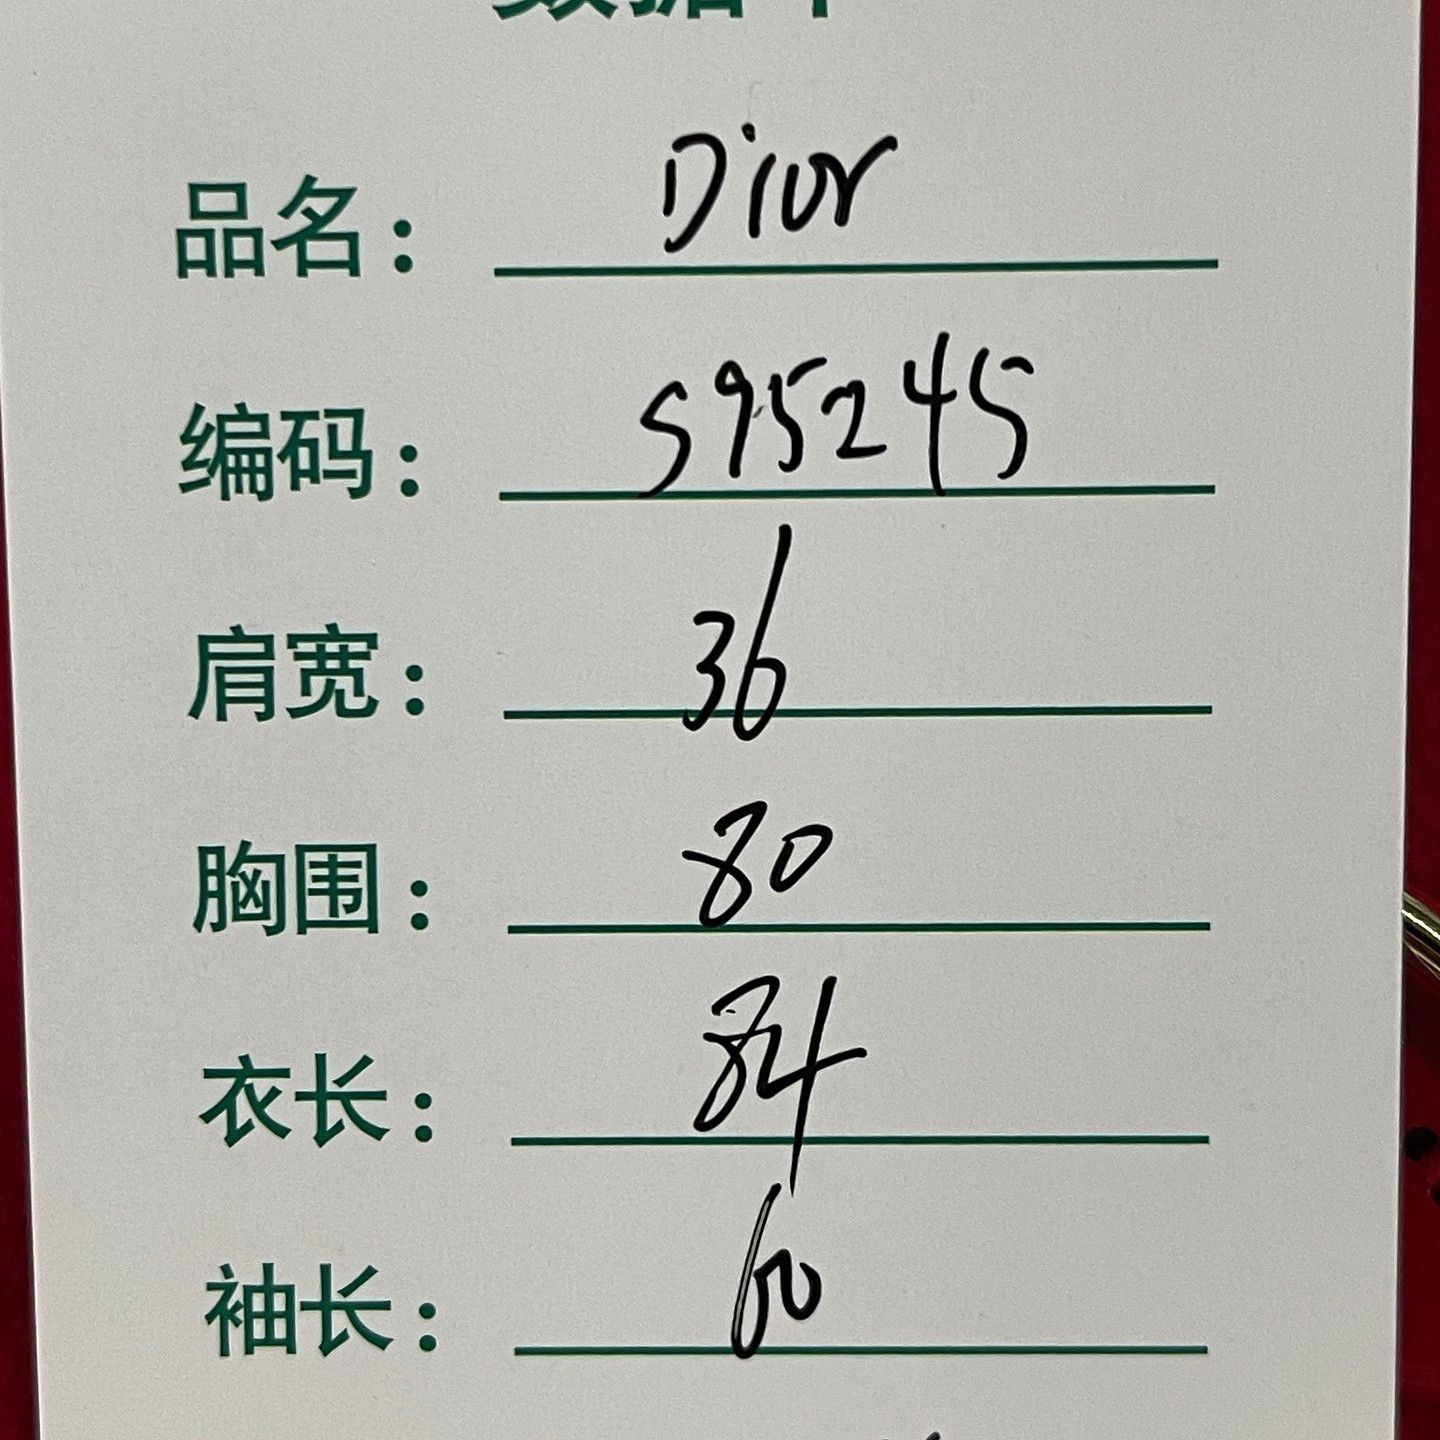 数据卡
品名： Dior
编码： S95245
肩宽： 36
胸围： 80
衣长： 84
袖长： 60